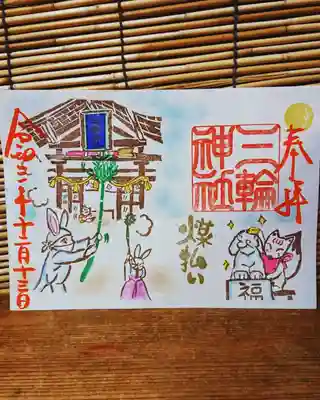 奉拝
三輪
神社
煤払い
福
令和三年十二月十三日